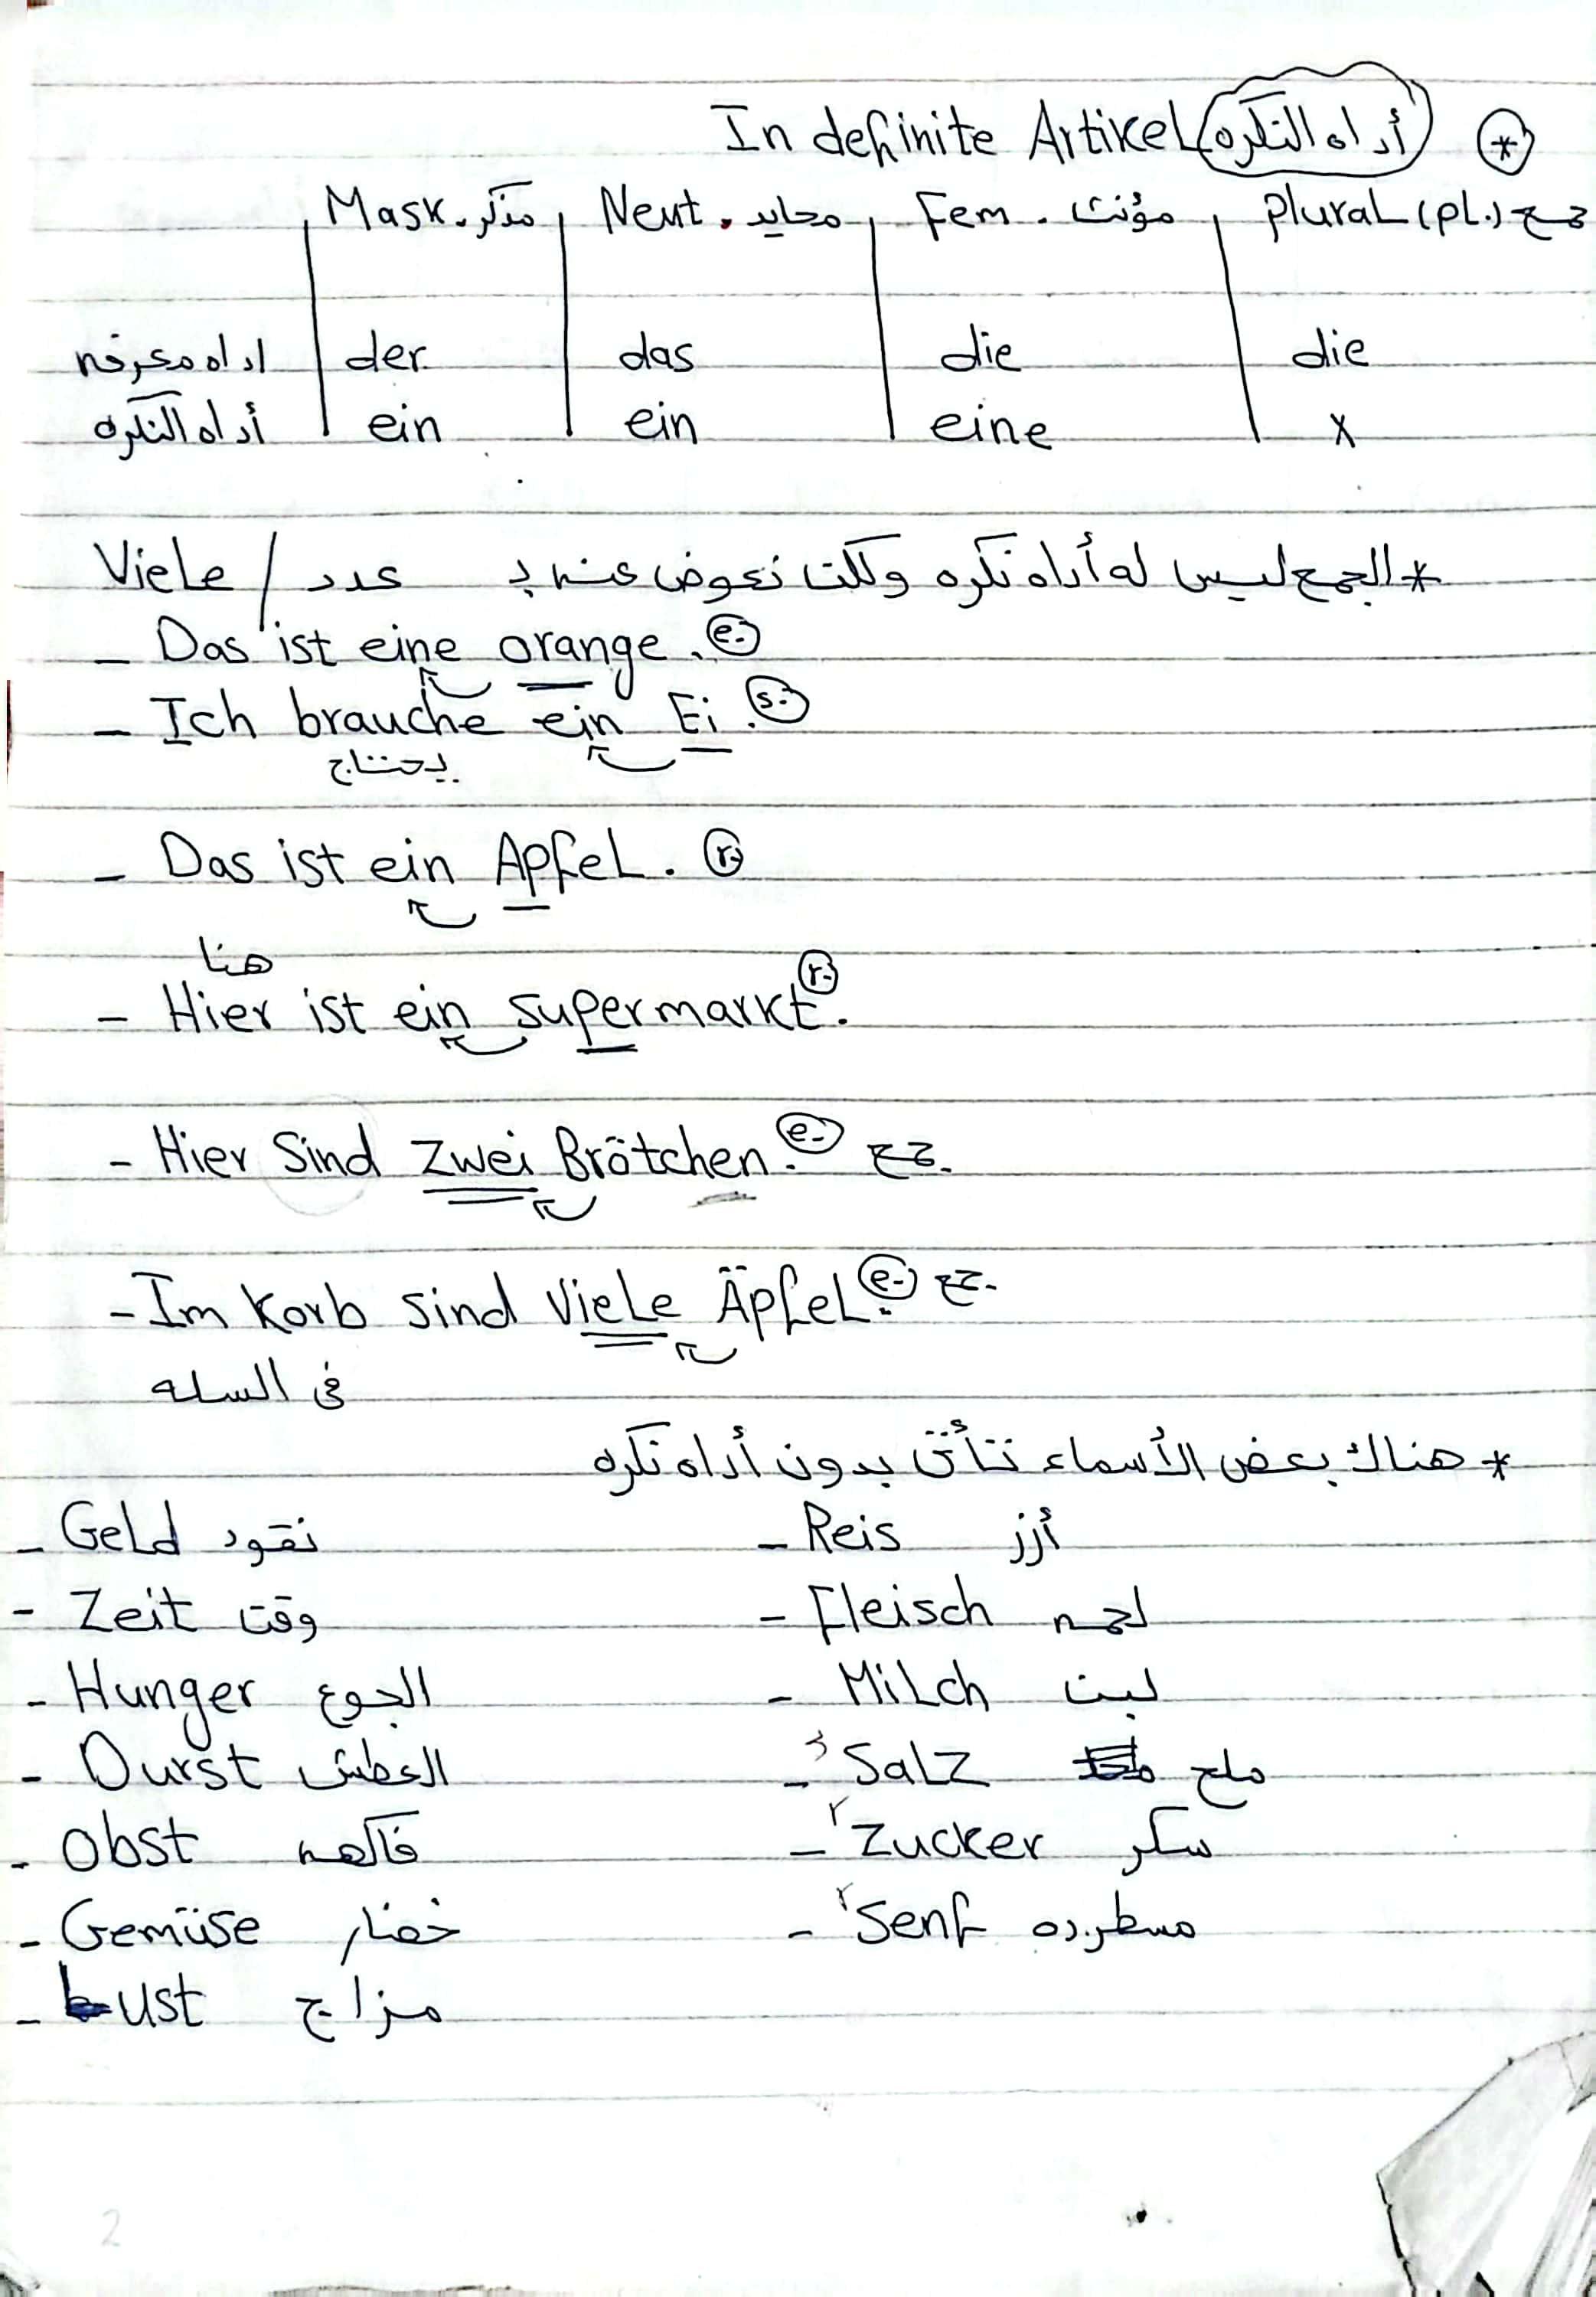 In definite Artikel (أداه النكره) *
Mask. مذكر Neut. محايد Fem. مؤنث plural (pl.) جمع
اداه معرفه der das die die
أداه النكره ein ein eine x
* الجمع ليس له أداه نكره ولكن نعوض عنه بـ عدد / Viele
- Das ist eine orange. e.
- Ich brauche ein Ei. s.
يحتاج
- Das ist ein Apfel. r.
هنا
- Hier ist ein supermarkt. r.
- Hier Sind zwei Brötchen. e. جمع
- Im Korb sind Viele Äpfel. e. جمع
فى السله
* هناك بعض الأسماء تأتى بدون أداه نكره
- Geld نقود - Reis أرز
- Zeit وقت - Fleisch لحمه
- Hunger الجوع - Milch لبن
- Durst العطش - s Salz ملح
- Obst فاكهه - r Zucker سكر
- Gemüse خضار - r Senf مسطرده
- Lust مزاج
2